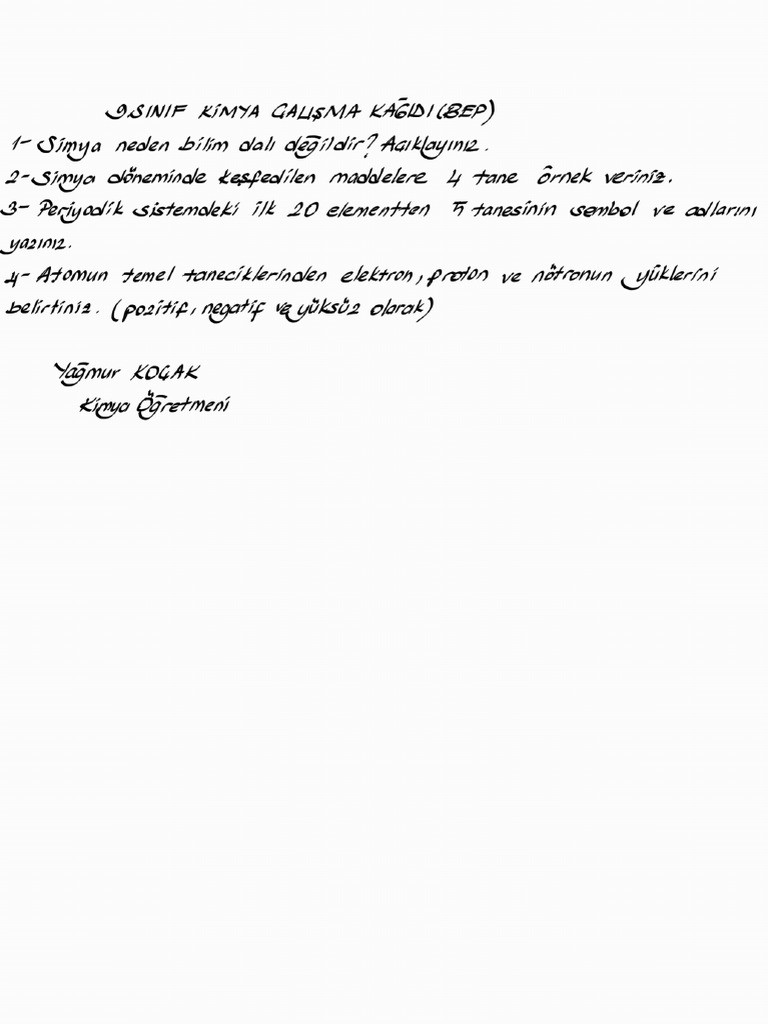 9.SINIF KİMYA ÇALIŞMA KAĞIDI(BEP)
1- Simya neden bilim dalı değildir? Açıklayınız.
2- Simya döneminde keşfedilen maddelere 4 tane örnek veriniz.
3- Periyodik sistemdeki ilk 20 elementten 5 tanesinin sembol ve adlarını
yazınız.
4- Atomun temel taneciklerinden elektron, proton ve nötronun yüklerini
belirtiniz. (pozitif, negatif ve yüksüz olarak)
Yağmur KOÇAK
Kimya Öğretmeni